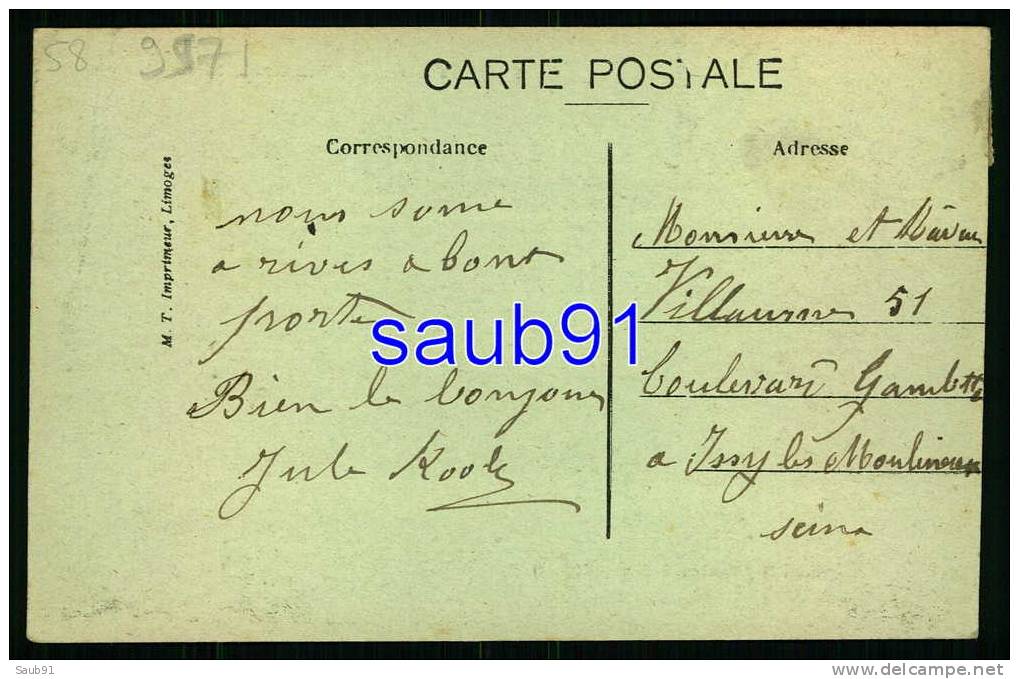 58 9971
CARTE POSTALE
Correspondance
Adresse
M. T. Imprimeur, Limoges
nous some
a rives a bont
porte
Bien le bonjour
Jule
Monsieur et Madame
51
boulevard Gambetta
a Issy les Moulineaux
seine
saub91
Saub91
www.delcampe.net